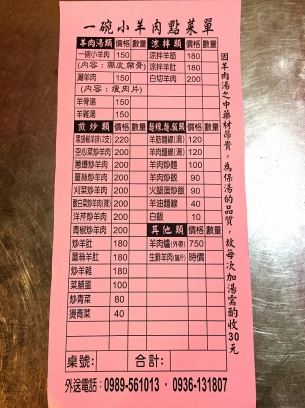 一碗小羊肉點菜單
羊肉湯類 價格 數量 涼拌類 價格 數量
一碗小羊肉 150 涼拌羊筋 180
(內容：帶皮帶骨) 涼拌羊肚 180
涮羊肉 150 白切羊肉 200
(內容：瘦肉片)
羊骨湯
羊雜湯
煎炒類 價格 數量 麵線、麵、飯類 價格 數量
220 羊筋麵線(湯) 120
空心菜炒羊肉 200 羊肉麵線(湯) 120
蔥爆炒羊肉 200 羊肉炒麵 100
薑絲炒羊肉 200 羊肉炒飯 90
刈菜炒羊肉 200 火腿蛋炒飯 90
200 羊油麵線 40
洋芹炒羊肉 200 白飯 10
青椒炒羊肉 200 其他類 價格 數量
炒羊肚 180 羊肉爐(外帶) 750
薑絲羊肚 180 生鮮羊肉(當斤) 時價
炒羊雜 180
菜脯蛋 100
炒青菜 80
燙青菜 40
桌號： 合計：
外送電話：0989-561013·0936-131807
因羊肉湯之中藥材昂貴，為保湯的品質，故每次加湯需酌收30元